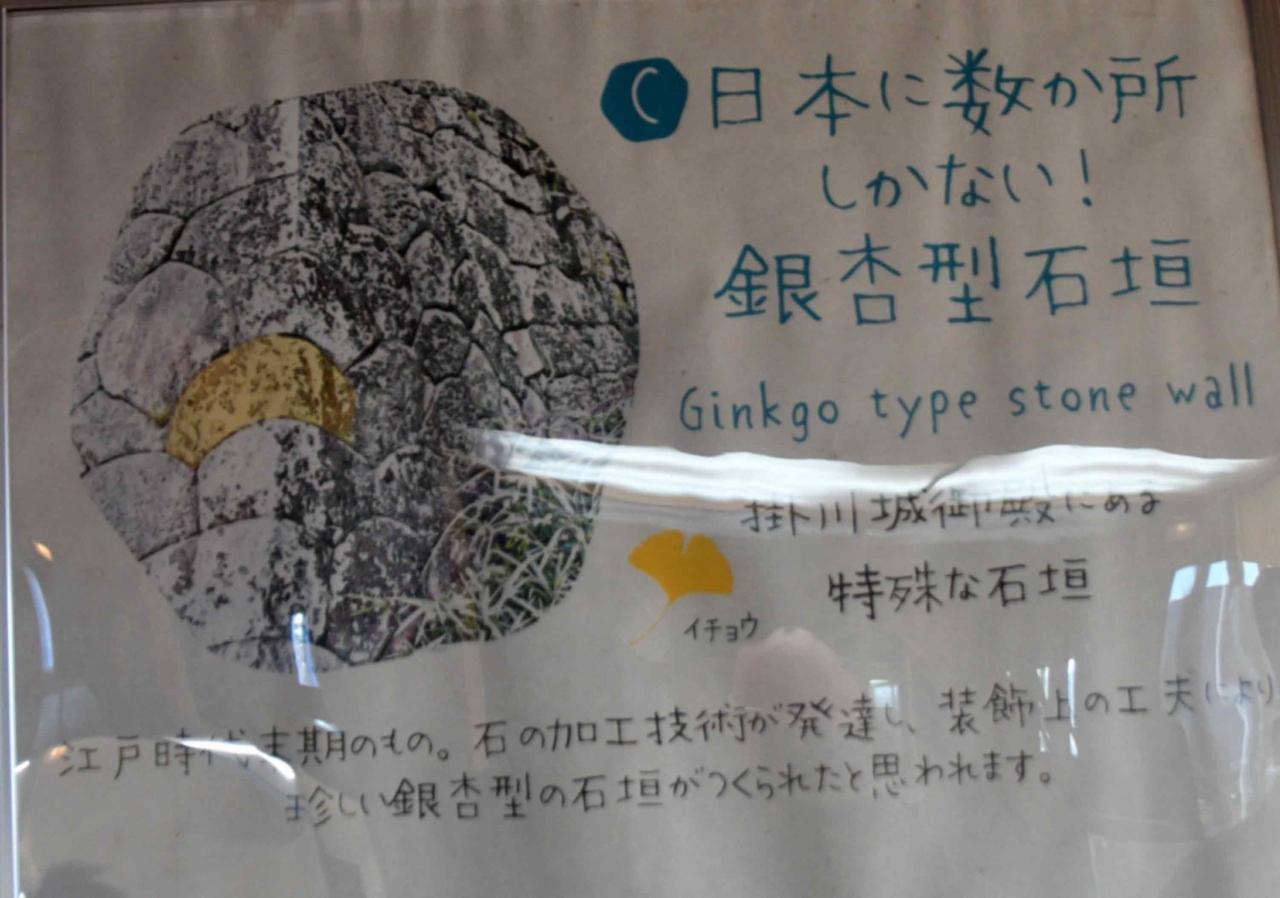 C 日本に数か所
しかない!
銀杏型石垣
Ginkgo type stone wall
掛川城御殿にある
特殊な石垣
イチョウ
江戸時代末期のもの。石の加工技術が発達し、装飾上の工夫により
珍しい銀杏型の石垣がつくられたと思われます。